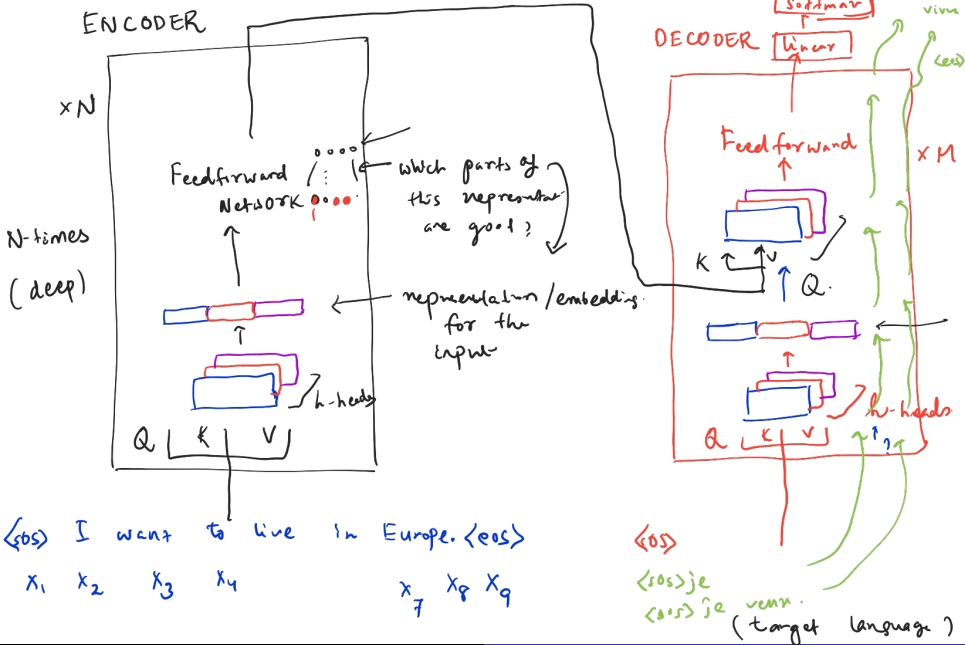 ENCODER
×N
Feedforward
Network
which parts of
this representat
are good?
N-times
(deep)
representation/embedding
for the
input
h-heads
Q K V
<sos> I want to live in Europe. <eos>
x1 x2 x3 x4 x7 x8 x9
softmax
linear
DECODER
vivre
<eos>
Feedforward
×M
K V
Q.
h-heads
?
Q K V
<sos>
<sos> je
<sos> je veux.
(target language)